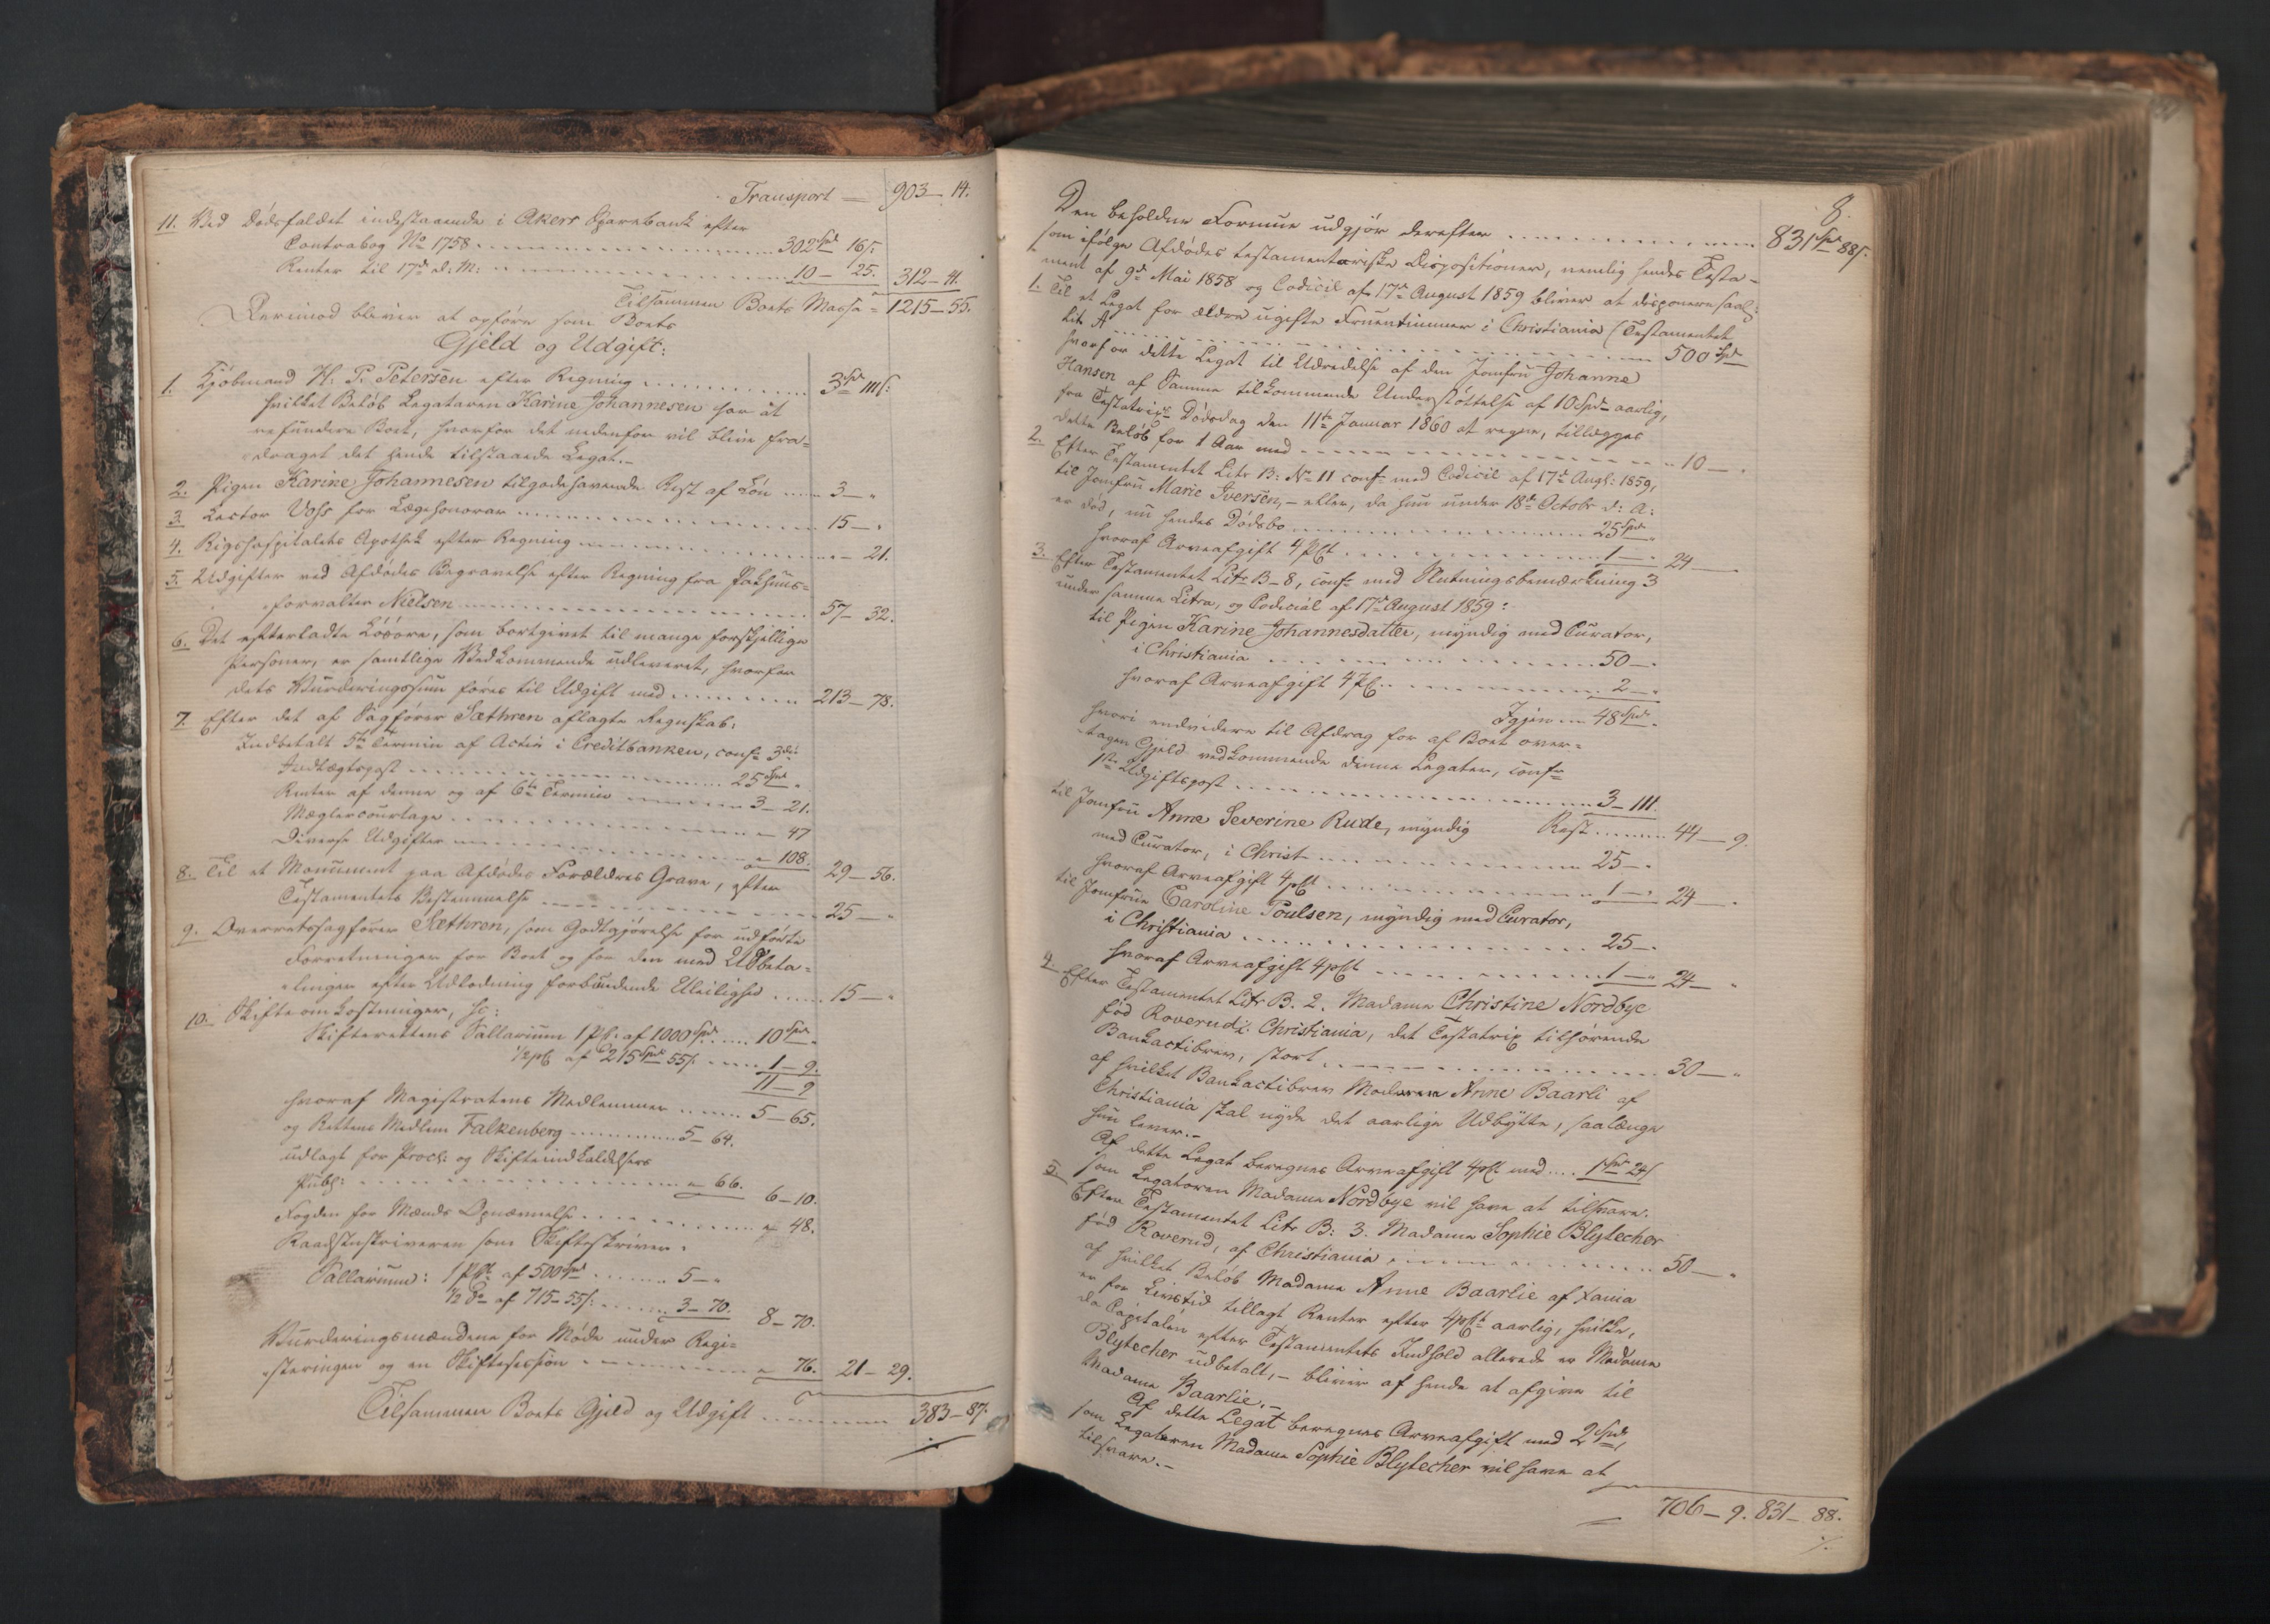 Transport — 903 — 14.
11. Ved Dødsfaldet indestaaende i Akers Sparebank efter
Contrabog No 1758 . . . 302 Spd 16 s.
Renter til 17de d: M: . . . 10 — 25. 312 — 41.
Tilsammen Boets Massa = 1215 — 55.
Derimod bliver at opføre som Boets
Gjeld og Udgift:
1. Kjøbmand H. P. Petersen efter Regning . . . 3 Spd 111 s:
hvilket Beløb Legataren Karine Johannesen har at
refundere Boet, hvorfor det nedenfor vil blive fra=
draget det hende tilstaaede Legat.—
2. Pigen Karine Johannesen tilgodehavende Rest af Løn . . . 3 — "
3. Lector Voss for Lægehonorar . . . 15 — "
4. Rigshospitalets Apothek efter Regning . . . " — 21.
5. Udgifter ved Afdødes Begravelse efter Regning fra Pakhuus=
forvalter Nielsen . . . 57 — 32.
6. Det efterladte Løsøre, som bortgivet til mange forskjellige
Personer, er samtlige Vedkommende udleveret, hvorfor
dets Vurderingssum føres til Udgift med . . . 213 — 78.
7. Efter det af Sagfører Sæthren aflagte Regnskab:
Indbetalt 5te Termin af Actie i Creditbanken, confr 3die
Indtægtspost . . . 25 Spd "
Renter af denne og af 6te Termin . . . 3 — 21.
Mæglercourtage . . . " — 47
Diverse Udgifter . . . " — 108. 29 — 56.
8. Til et Monument paa Afdødes Forældres Grave, efter
Testamentets Bestemmelse . . . 25 — "
9. Overretssagfører Sæthren, som Godtgjørelse for udførte
Forretninger for Boet og for den med Udbeta=
linger efter Udlodning forbundende Uleilighed . . . 15 — "
10. Skifteomkostninger, sc:
Skifterettens Sallarium 1 pC. af 1000 Spd . . . 10 Spd "
1/2 pC. af 215 Spd 55 s. . . . 1 — 9.
11 — 9
hvoraf Magistratens Medlemmer . . . 5 — 65.
og Rettens Medlem Falkenberg . . . 5 — 64.
udlagt for Procl: og Skifteindkaldelsers
Publ: . . . " — 66. 6 — 10.
Fogden for Mænds Opnævnelse . . . " — 48.
Raadstuskriveren som Skifteskriver:
Sallarium: 1 pCt. af 500 Spd . . . 5 — "
1/2 do af 715 — 55 s. . . . 3 — 70. 8 — 70.
Vurderingsmændene for Møde under Regi=
steringen og en Skiftesession . . . " — 76. 21 — 29.
Tilsammen Boets Gjeld og Udgift . . . 383 — 87.
8.
Den beholdne Formue udgjør derefter . . . 831 Spd 88 s.
som ifølge Afdødes testamentariske Dispositioner, nemlig hendes Testa=
ment af 9de Mai 1858 og Codicil af 17de August 1859 bliver at disponere saal:
1. Til et Legat for ældre ugifte Fruentimmer i Christiania (Testamentet
Litr A . . . 500 Spd
hvorfor dette Legat til Udredelse af den Jomfru Johanne
Hansen af Samme tilkommende Understøttelse af 10 Spd aarlig,
fra Testatrix Dødsdag den 11te Januar 1860 at regne, tillægges
dette Beløb for 1 Aar med . . . " 10 — "
2. Efter Testamentet Litr B: No 11 confr med Codicil af 17de Augs: 1859,
til Jomfru Marie Iversen, — eller, da hun under 18de Octobr d: A:
er død, nu hendes Dødsbo . . . 25 Spd
hvoraf Arveafgift 4 pCt . . . 1 — " 24 — "
3. Efter Testamentet Litr B — 8, confr med Slutningsbemærkning 3
under samme Litra, og Codicial af 17de August 1859:
til Pigen Karine Johannesdatter, myndig med Curator,
i Christiania . . . 50 — "
hvoraf Arveafgift 4 pC. . . . 2 — "
Igjen . . . 48 Spd "
hvori endvidere til Afdrag for af Boet over=
tagen Gjeld vedkommende denne Legatar, confr
1ste Udgiftspost . . . 3 — 111.
Rest . . . 44 — 9.
til Jomfru Anne Severine Rude, myndig
med Curator, i Christ . . . 25 — "
hvoraf Arveafgift 4 pCt . . . 1 — " 24 — "
til Jomfrue Caroline Poulsen, myndig med Curator,
i Christiania . . . 25 — "
hvoraf Arveafgift 4 pCt . . . 1 — " 24 — "
4. Efter Testamentet Litr B. 2. Madame Christine Nordbye
fød Roverud i Christiania, det Testatrix tilhørende
Bankactibrev, stort . . . 30 — "
af hvilket Bankactibrev Madame Anne Baarli af
Christiania skal nyde det aarlige Udbytte, saalænge
hun lever.—
Af dette Legat beregnes Arveafgift 4 pC. med . . . 1 Spd 24 s
som Legataren Madame Nordbye vil have at tilsvare.
5. Efter Testamentet Litr B: 3. Madame Sophie Blytecher
fød Roverud, af Christiania . . . 50 — "
af hvilket Beløb Madame Anne Baarlie af Xania
er for Livstid tillagt Renter efter 4 pCt aarlig, hvilke,
da Capitalen efter Testamentets Indhold allerede er Madame
Blytecher udbetalt, — bliver af hende at afgive til
Madame Baarlie.—
Af dette Legat beregnes Arveafgift med 2 Spd,
som Legataren Madame Sophie Blytecher vil have at
tilsvare.—
706 — 9. 831 — 88.